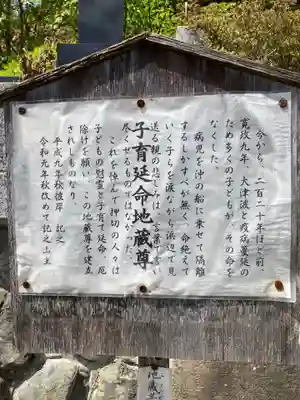 今から、二百二十年ほど前、
寛政九年、大津波と疫病蔓延の
ため多くの子どもが、その命を
なくした。
病児を沖の船に乗せて隔離
するしかすべが無く、命絶えて
いく子らを涙ながら浜辺で見
送る親の悲しみは、言葉で言い
尽くせるものではなかった。
子育延命地蔵尊
これを悼んで押切の人々は
子どもの慰霊と子育て延命、厄
除けを願い、この地蔵尊を建立
されしものなり。
平成九年秋彼岸 記之
令和元年秋改めて記之 山主
地蔵